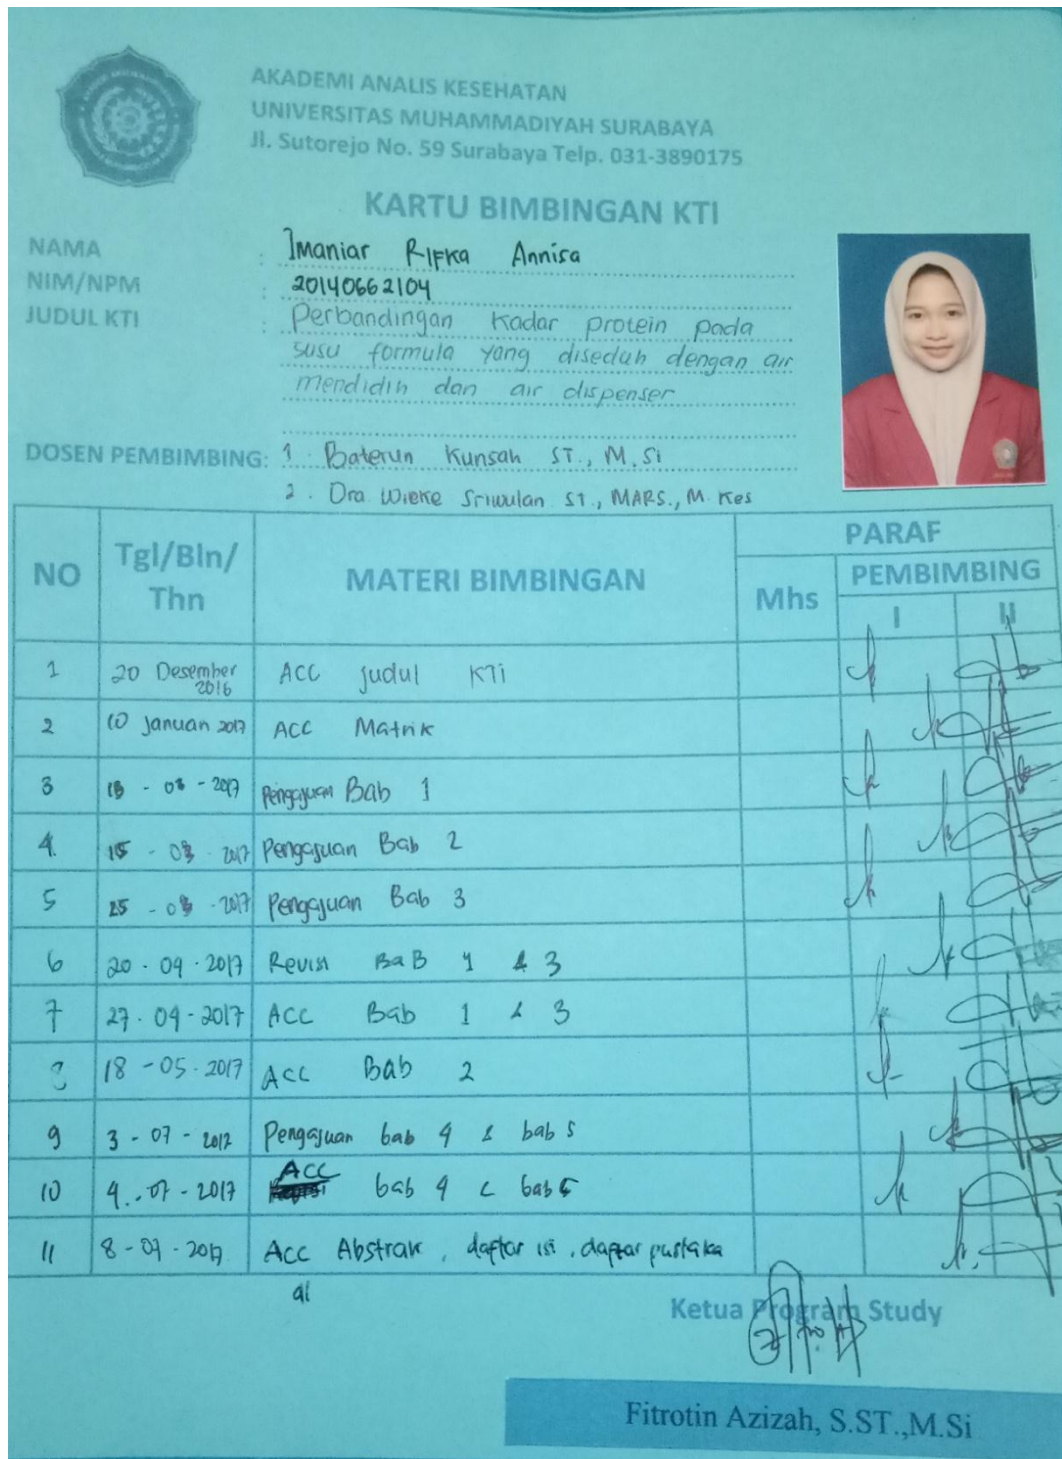 AKADEMI ANALIS KESEHATAN
UNIVERSITAS MUHAMMADIYAH SURABAYA
Jl. Sutorejo No. 59 Surabaya Telp. 031-3890175
KARTU BIMBINGAN KTI
NAMA : Imaniar Rifka Annisa
NIM/NPM : 20140662104
JUDUL KTI : Perbandingan kadar protein pada
susu formula yang diseduh dengan air
mendidih dan air dispenser
DOSEN PEMBIMBING: 1. Baterun Kunsah ST., M.Si
2. Dra Wieke Sriwulan ST., MARS., M.Kes
NO Tgl/Bln/Thn MATERI BIMBINGAN PARAF
Mhs PEMBIMBING
I II
1 20 Desember 2016 ACC judul KTi
2 10 Januari 2017 ACC Matrik
3 - 03 - 2017 Pengajuan Bab 1
4. 15 - 03 - 2017 Pengajuan Bab 2
5 25 - 03 - 2017 Pengajuan Bab 3
6 20 - 04 - 2017 Revisi BaB 1 & 3
7 27 - 04 - 2017 ACC Bab 1 & 3
8 18 - 05 - 2017 ACC Bab 2
9 3 - 07 - 2017 Pengajuan bab 4 & bab 5
10 4 - 07 - 2017 ACC bab 4 & bab 5
11 8 - 07 - 2017 Acc Abstrak, daftar isi, daftar pustaka
Ketua Program Study
Fitrotin Azizah, S.ST.,M.Si